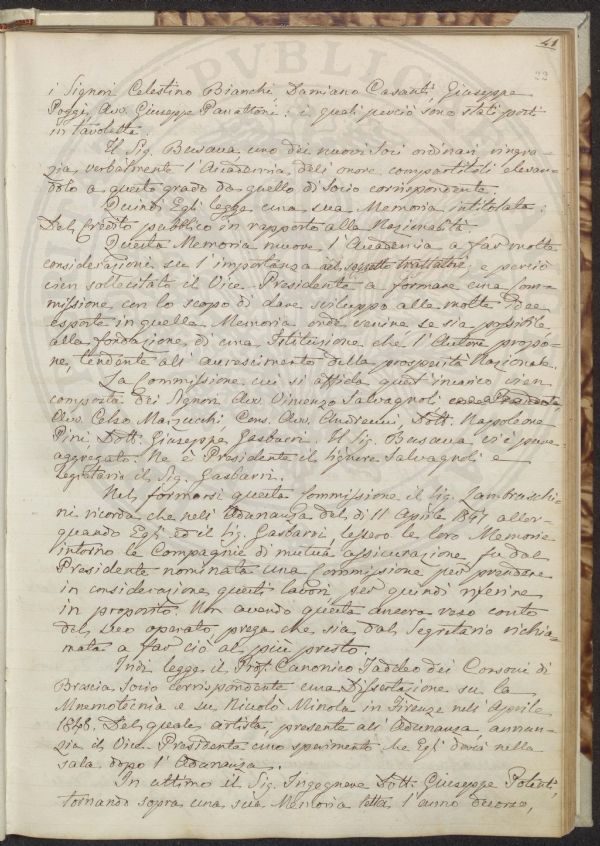 41
22
i Signori Celestino Bianchi Damiano Casanti, Giuseppe
Poggi, Avv. Giuseppe Panattoni: i quali perciò sono stati posti
in tavoletta.
Il Sig. Busacca uno dei nuovi Soci ordinari ringra-
zia verbalmente l'Accademia, dell'onore compartitoli elevan-
dolo a questo grado da quello di Socio corrispondente.
Quindi Egli legge una sua Memoria intitolata:
Del Credito pubblico in rapporto alla Nazionalità.
Questa Memoria muove l'Accademia a far molta
considerazione su l'importanza del soggetto trattatovi, e perciò
vien sollecitato il Vice-Presidente a formare una Com-
missione, con lo scopo di dare sviluppo alle molte Idee
esposte in quella Memoria onde venire se sia possibile
alla fondazione di una Istituzione che l'Autore propo-
ne, tendente all'accrescimento della prosperità Nazionale.
La Commissione cui si affida quest'incarico vien
composta dei Signori Avv. Vincenzo Salvagnoli
Avv. Celso Marzucchi Cons. Avv. Andreucci, Dott. Napoleone
Pini, Dott. Giuseppe Gasbarri. Il Sig. Busacca vi è pure
aggregato. Ne è Presidente il Signore Salvagnoli e
Segretario il Sig. Gasbarri.
Nel formarsi questa Commissione il Sig. Lambruschi-
ni ricorda che nell'Adunanza del dì 11 Aprile 1847 allor-
quando Egli ed il Sig. Gasbarri, lessero le loro Memorie
intorno le Compagnie di mutua assicurazione fu dal
Presidente nominata una Commissione per prendere
in considerazione questi lavori per quindi riferire
in proposito. Non avendo questa ancora reso conto
del suo operato, prega che sia dal Segretario richia-
mata a far ciò al più presto.
Indi legge il Prof. Canonico Taddeo dei Consoni di
Brescia Socio Corrispondente una Dissertazione su la
Mnemotecnia e su Niccolò Minola in Firenze nell'Aprile
1848. Del quale artista, presente all'Adunanza annun-
zia il Vice-Presidente uno sperimento che Egli darà nella
sala dopo l'Adunanza.
In ultimo il Sig. Ingegnere Dott. Giuseppe Potenti,
tornando sopra una sua Memoria letta l'anno decorso,